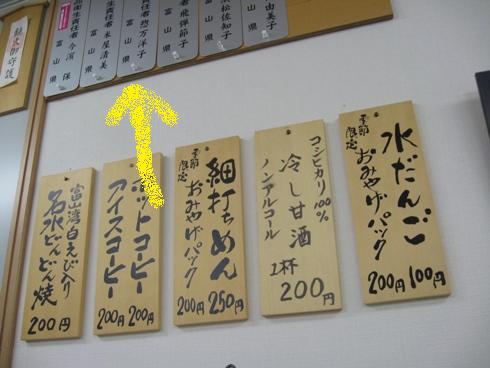 由美子
松佐知子
富山県
者飛弾節子
富山県
者惣万洋子
富山県
生責任者米屋清美
富山県
品衛生責任者今濱保
富山県
御守護
水だんご
季節限定おみやげパック
200円 100円
コシヒカリ100%
冷し甘酒
ノンアルコール
1杯
200円
細打ちめん
季節限定おみやげパック
200円 250円
ホットコーヒー
アイスコーヒー
200円 200円
富山湾白えび入り
名水どんどん焼
200円